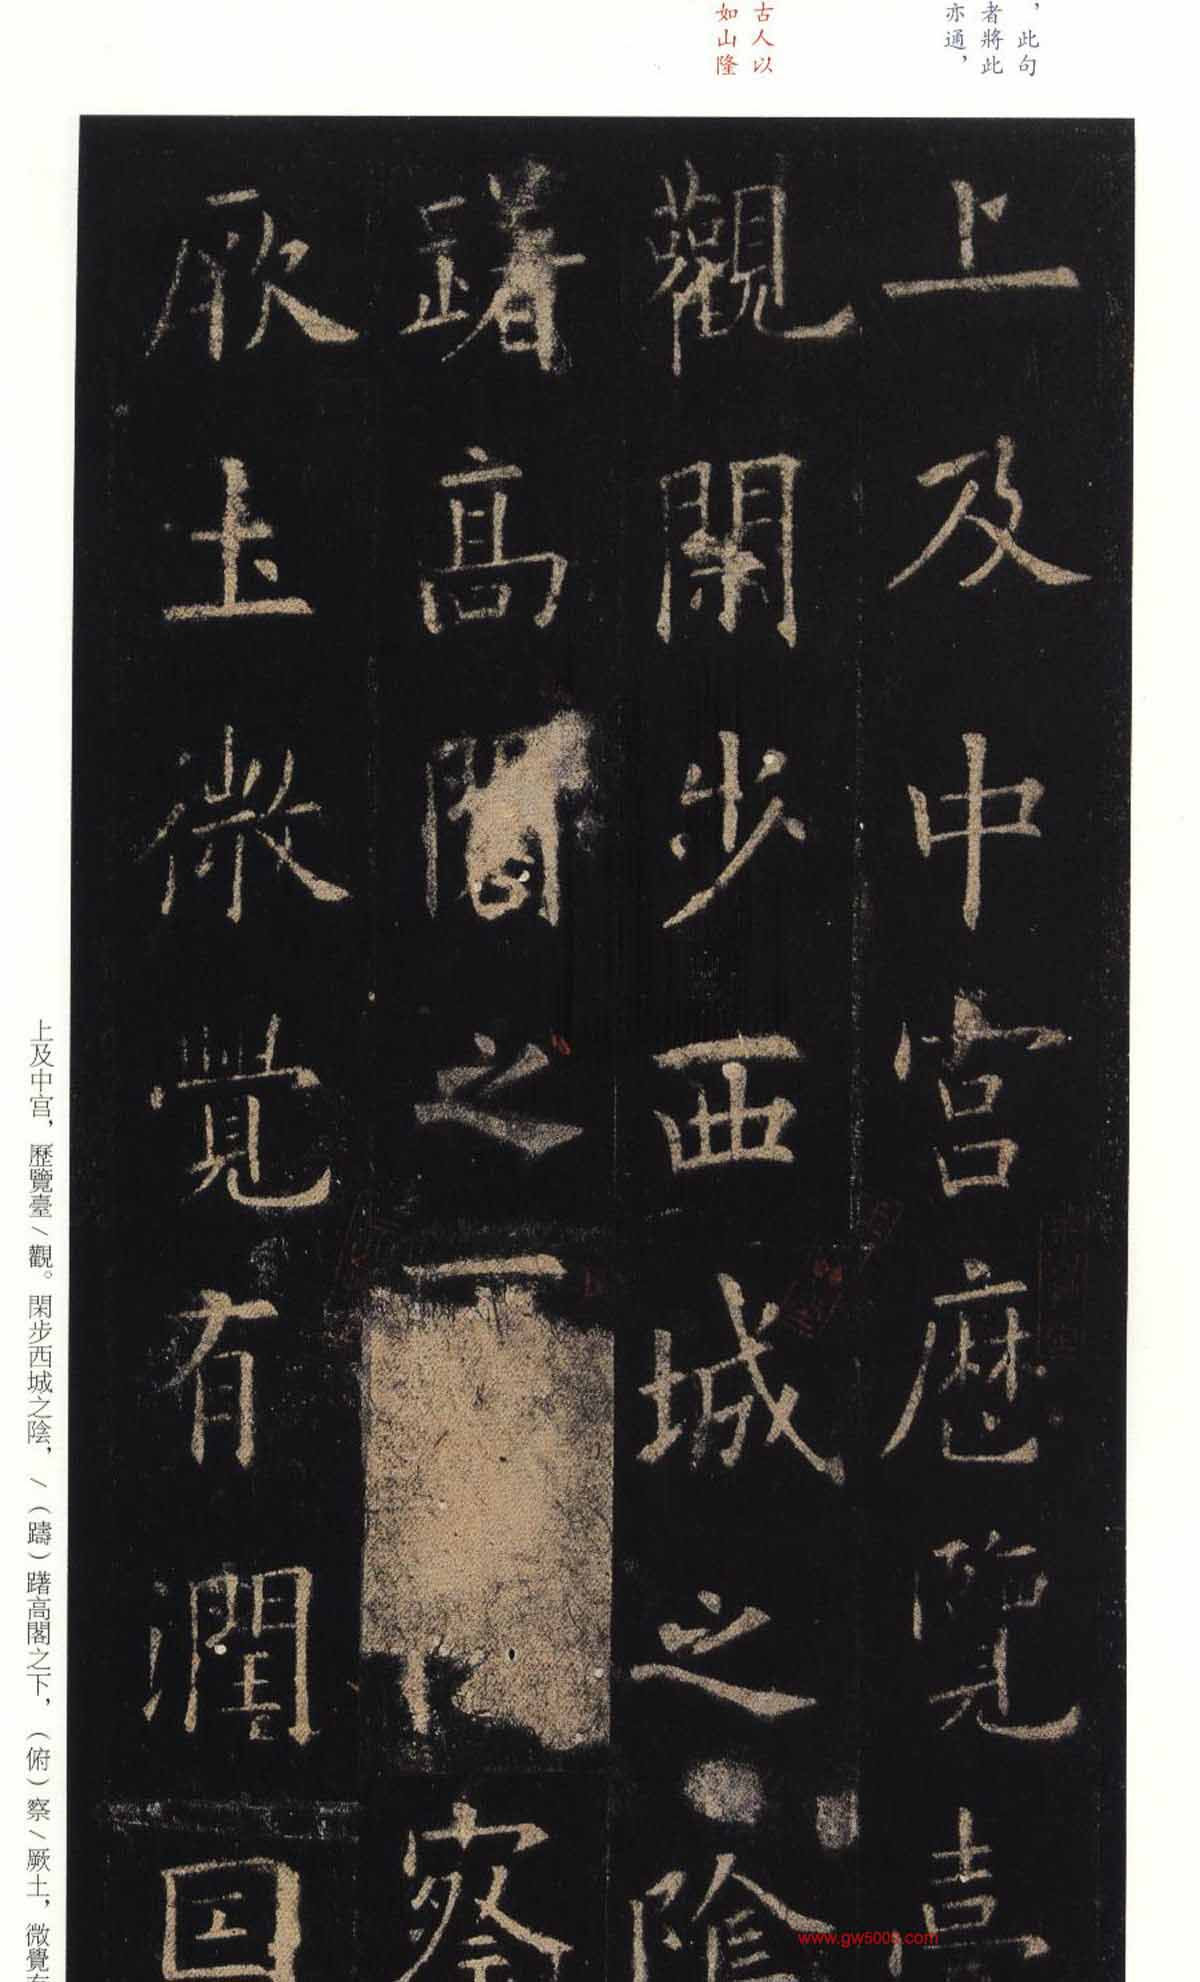 ，此句
者將此
亦通，
古人以
如山隆
上及中宮歷覽臺
觀閑步西城之陰
躇高閣之下察
厥土微覺有潤因
上及中宮，歷覽臺/觀。閑步西城之陰，/（躊）躇高閣之下，（俯）察/厥土，微覺有
www.gw5000.com